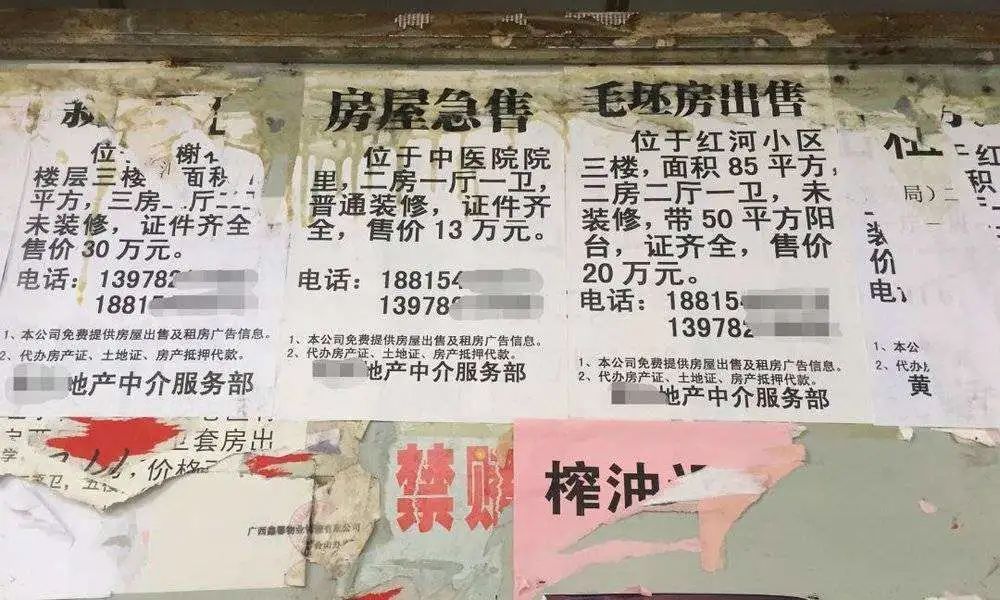 位
楼层三楼 面积
平方，三房二厅二
未装修，证件齐全
售价30万元。
电话：139782
18815
1、本公司免费提供房屋出售及租房广告信息。
2、代办房产证、土地证、房产抵押代款。
地产中介服务部
房屋急售
位于中医院院
里，二房一厅一卫，
普通装修，证件齐
全，售价13万元。
电话：188154
13978
1、本公司免费提供房屋出售及租房广告信息。
2、代办房产证、土地证、房产抵押代款。
地产中介服务部
毛坯房出售
位于红河小区
三楼，面积85平方，
二房二厅一卫，未
装修，带50平方阳
台，证齐全，售价
20万元。
电话：18815
139782
1、本公司免费提供房屋出售及租房广告信息。
2、代办房产证、土地证、房产抵押代款。
地产中介服务部
位
红
积
局）二
装
价
电
1、本公
2、代办
黄
卫套房出
学
价格
禁赌
榨油